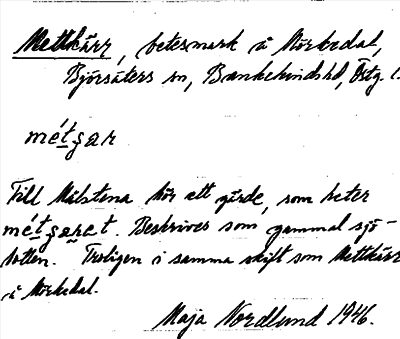 Mettkärr, betesmark å Mörkedal,
Björsäters sn, Bankekinds hd, Östg. l.
métgar
Till Målstena hör ett gärde, som heter
métgaret. Beskrives som gammal sjö-
botten. Troligen i samma skift som Mettkärr
å Mörkedal.
Maja Nordlund 1946.